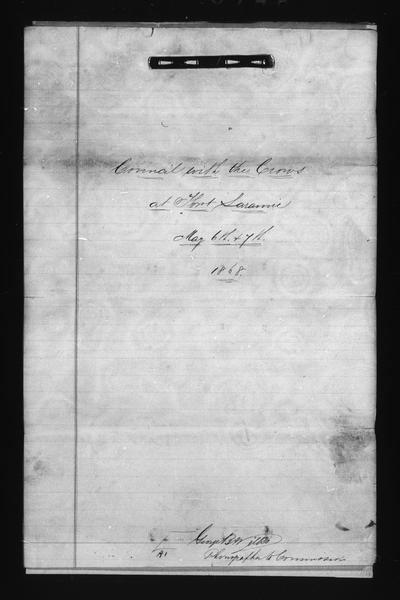 Council with the Crows
at Fort Laramie
May 6th. & 7th.
1868.
Geo. B. Willis
Phonographer to Commission